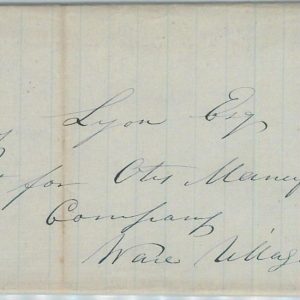 Lyon Esq
for Otis Manuf
Company
Ware Villag